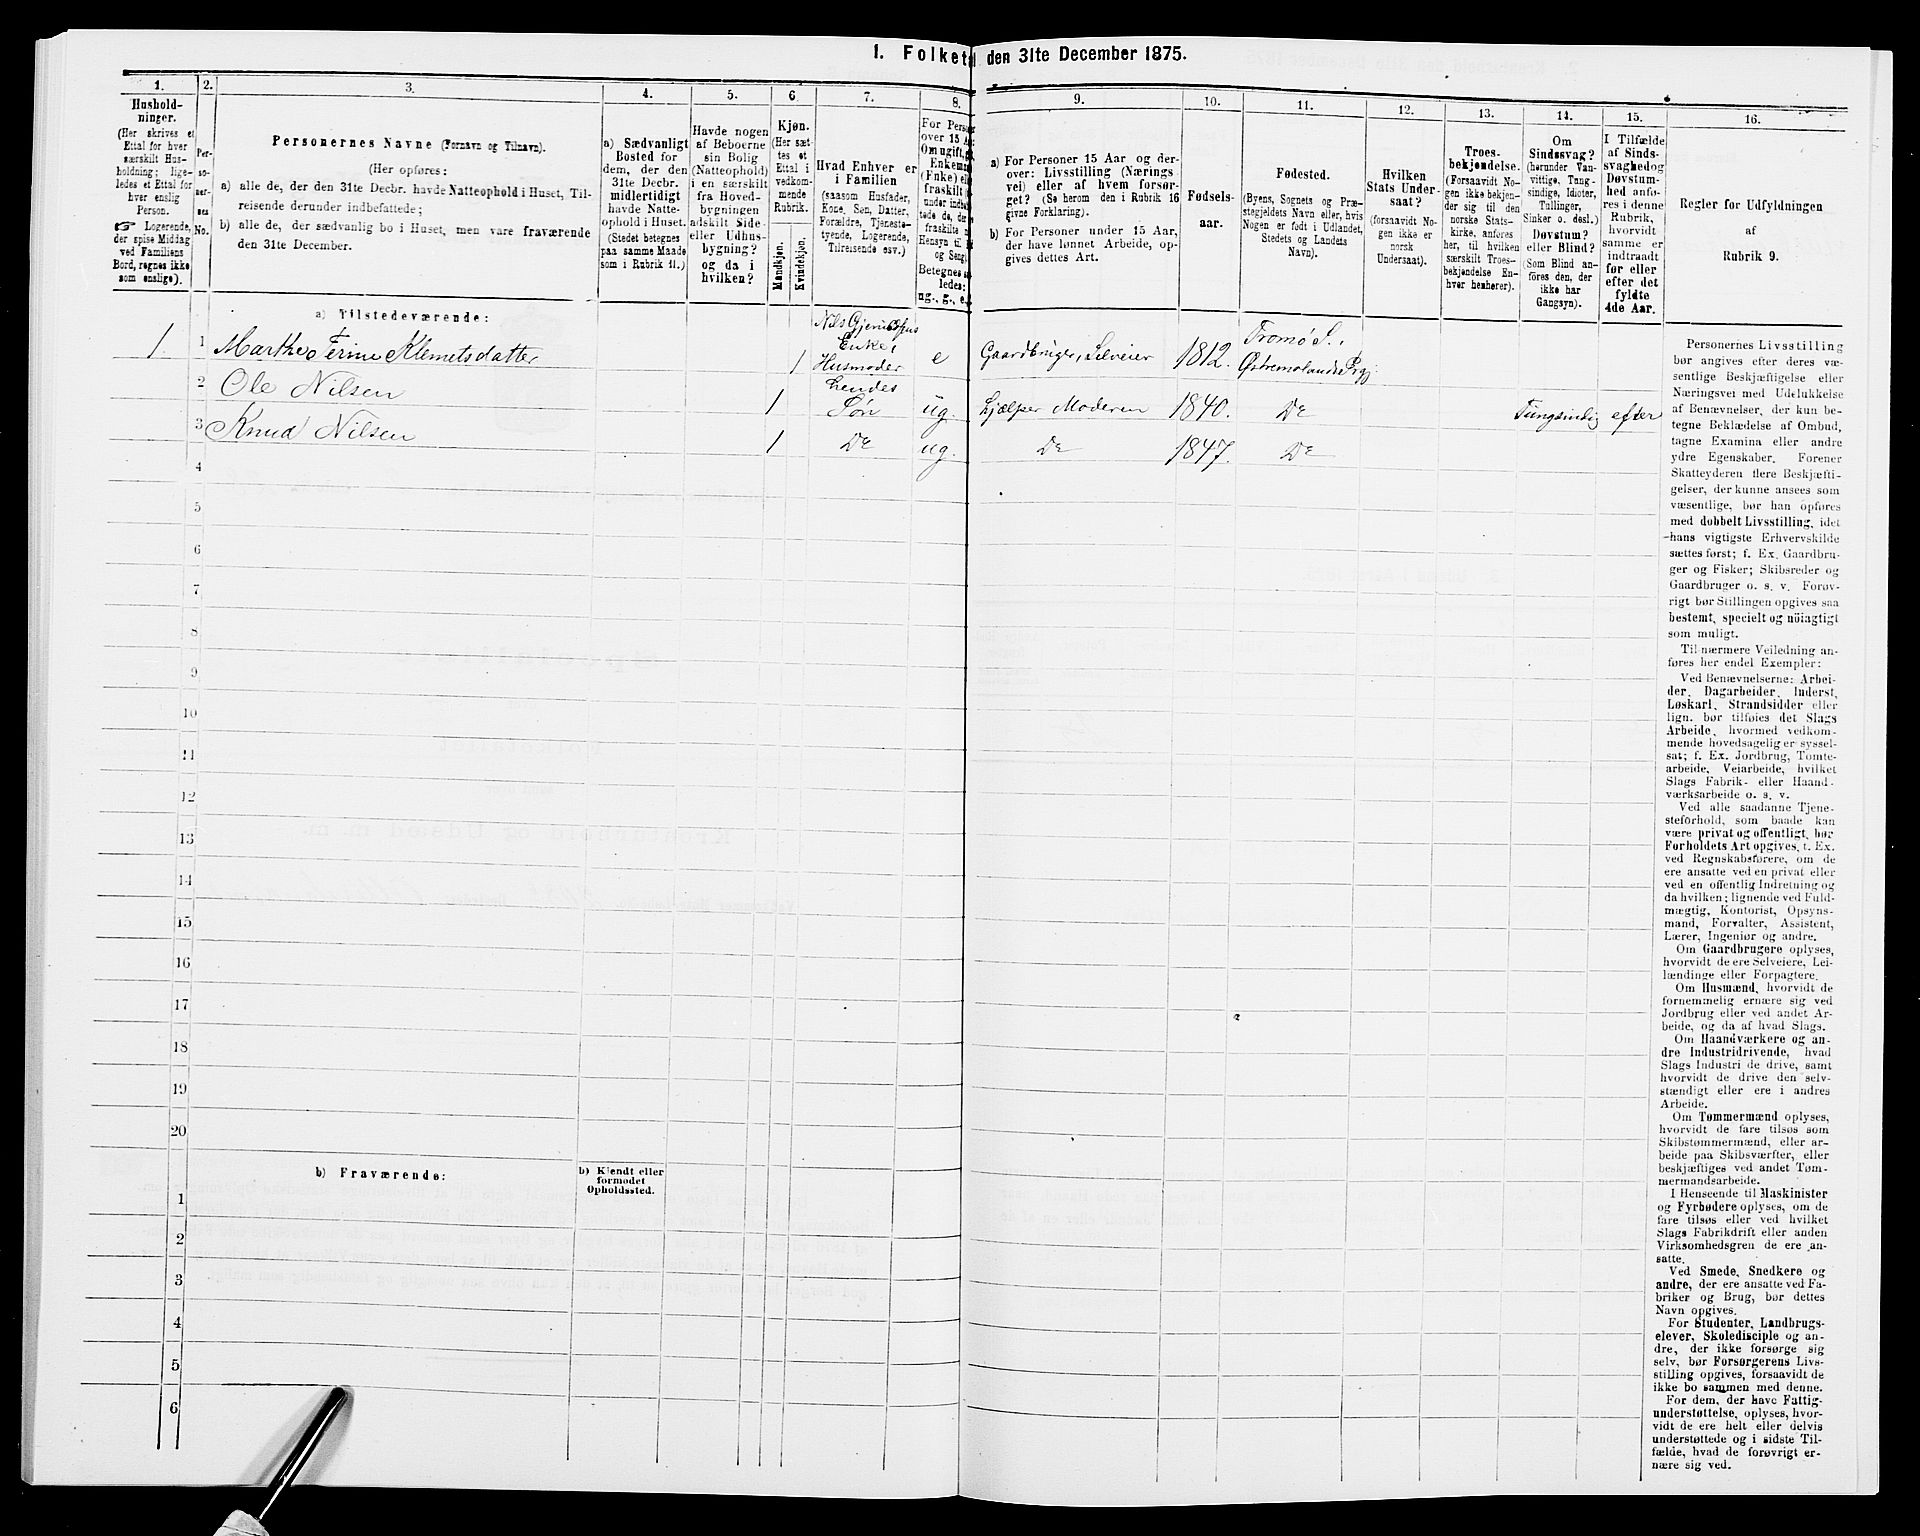 1. Folketal den 31te December 1875.
1.
Hushold-
ninger.
(Her skrives et
Ettal for hver
særskilt Hus-
holdning; lige-
ledes et Ettal for
hver enslig
Person.
☞ Logerende,
der spise Middag
ved Familiens
Bord, regnes ikke
som enslige).
2.
Per-
so-
ner-
nes
No.
3.
Personernes Navne (Fornavn og Tilnavn).
(Her opføres:
a) alle de, der den 31te Decbr. havde Natteophold i Huset, Til-
reisende derunder indbefattede;
b) alle de, der sædvanlig bo i Huset, men vare fraværende
den 31te December.
4.
a) Sædvanligt
Bosted for
dem, der den
31te Decbr.
midlertidigt
havde Natte-
ophold i Huset.
(Stedet betegnes
paa samme Maade
som i Rubrik 11.)
5.
Havde nogen
af Beboerne
sin Bolig
(Natteophold)
i en særskilt
fra Hoved-
bygningen
adskilt Side-
eller Udhus-
bygning?
og da i
hvilken?
6.
Kjøn.
(Her sæt-
tes et
Ettal i
vedkom-
mende
Rubrik.
Mandkjøn.
Kvindekjøn.
7.
Hvad Enhver er
i Familien
(saasom Husfader,
Kone, Søn, Datter,
Forældre, Tjeneste-
tyende, Logerende,
Tilreisende osv.)
8.
For Perso
over 15 A
Om ugift, g
Enkem
(Enke) el
fraskilt
under indb
tede de, d
fraskilte
Hensyn til
og Seng
Betegnes
ledes:
ug., g., e.
9.
a) For Personer 15 Aar og der-
over: Livsstilling (Nærings
vei) eller af hvem forsør-
get? (Se herom den i Rubrik 16
givne Forklaring).
b) For Personer under 15 Aar,
der have lønnet Arbeide, op-
gives dettes Art.
10.
Fødsels-
aar.
11.
Fødested.
(Byens, Sognets og Præ-
stegjeldets Navn eller, hvis
Nogen er født i Udlandet,
Stedets og Landets
Navn).
12.
Hvilken
Stats Under-
saat?
(forsaavidt No-
gen ikke er
norsk
Undersaat).
13.
Troes-
bekjendelse.
(Forsaavidt No-
gen ikke bekjen-
der sig til den
norske Stats-
kirke, anføres
her, til hvilken
særskilt Troes-
bekjendelse En-
hver henhører).
14.
Om
Sindssvag?
(herunder Van-
vittige, Tung-
sindige, Idioter,
Tullinger,
Sinker o. desl.)
Døvstum?
eller Blind?
(Som Blind an-
føres den, der
ikke har
Gangsyn).
15.
I Tilfælde
af Sinds-
svaghed og
Døvstum-
hed anfø-
res i denne
Rubrik,
hvorvidt
samme er
indtraadt
før eller
efter det
fyldte
4de Aar.
16.
Regler for Udfyldningen
af
Rubrik 9.
a) Tilstedeværende:
1 1 Marthe Terine Klemetsdatter 1 Enke, Husmoder e Gaardbruger, Selveier 1812. Tromø S.,
2 Ole Nilsen 1 hendes Søn ug. hjælper Moderen 1840. Do Tungsindig efter
3 Knud Nilsen 1 Do ug. Do 1847. Do
4
5
6
7
8
9
10
11
12
13
14
15
16
17
18
19
20
b) Fraværende:
b) Kjendt eller
formodet
Opholdssted.
1
2
3
4
5
6
Personernes Livsstilling
bør angives efter deres væ-
sentlige Beskjæftigelse eller
Næringsvei med Udelukkelse
af Benævnelser, der kun be-
tegne Beklædelse af Ombud,
tagne Examina eller andre
ydre Egenskaber. Forener
Skatteyderen flere Beskjæfti-
gelser, der kunne ansees som
væsentlige, bør han opføres
med dobbelt Livsstilling, idet
hans vigtigste Erhvervskilde
sættes først; f. Ex. Gaardbru-
ger og Fisker; Skibsreder og
Gaardbruger o. s. v. Forøv-
rigt bør Stillingen opgives saa
bestemt, specielt og nöiagtigt
som muligt.
Til nærmere Veiledning an-
føres her endel Exempler:
Ved Benævnelserne: Arbei-
der, Dagarbeider, Inderst,
Løskarl, Strandsidder eller
lign. bør tilføies det Slags
Arbeide, hvormed vedkom-
mende hovedsagelig er syssel-
sat; f. Ex. Jordbrug, Tomte-
arbeide, Veiarbeide, hvilket
Slags Fabrik- eller Haand-
værksarbeide o. s. v.
Ved alle saadanne Tjene-
steforhold, som baade kan
være privat og offentligt, bør
Forholdets Art opgives, f. Ex.
ved Regnskabsførere, om de
ere ansatte ved en privat eller
ved en offentlig Indretning og
da hvilken; lignende ved Fuld-
mægtig, Kontorist, Opsyns-
mand, Forvalter, Assistent,
Lærer, Ingeniør og andre.
Om Gaardbrugere oplyses,
hvorvidt de ere Selveiere, Lei-
lændinge eller Forpagtere.
Om Husmænd, hvorvidt de
fornemmelig ernære sig ved
Jordbrug eller ved andet Ar-
beide, og da af hvad Slags.
Om Haandværkere og an-
dre Industridrivende, hvad
Slags Industri de drive, samt
hvorvidt de drive den selv-
stændigt eller ere i andres
Arbeide.
Om Tømmermænd oplyses,
hvorvidt de fare tilsøs som
Skibstømmermænd, eller ar-
beide paa Skibsværfter, eller
beskjæftiges ved andet Tøm-
mermandsarbeide.
I Henseende til Maskinister
og Fyrbødere oplyses, om de
fare tilsøs eller ved hvilket
Slags Fabrikdrift eller anden
Virksomhedsgren de ere an-
satte.
Ved Smede, Snedkere og
andre, der ere ansatte ved Fa-
briker og Brug, bør dettes
Navn opgives.
For Studenter, Landbrugs-
elever, Skoledisciple og an-
dre, der ikke forsørge sig
selv, bør Forsørgerens Livs-
stilling opgives, forsaavidt de
ikke bo sammen med denne.
For dem, der have Fattig-
understøttelse, oplyses, hvor-
vidt de ere helt eller delvis
understøttede og i sidste Til-
fælde, hvad de forøvrigt er-
nære sig ved.